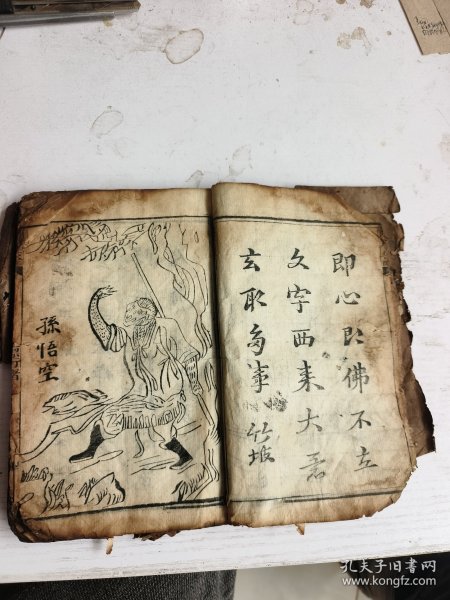 即心即佛不立
文字西来大意
玄取多事
竹垞
孫悟空
孔夫子旧书网
www.kongfz.com